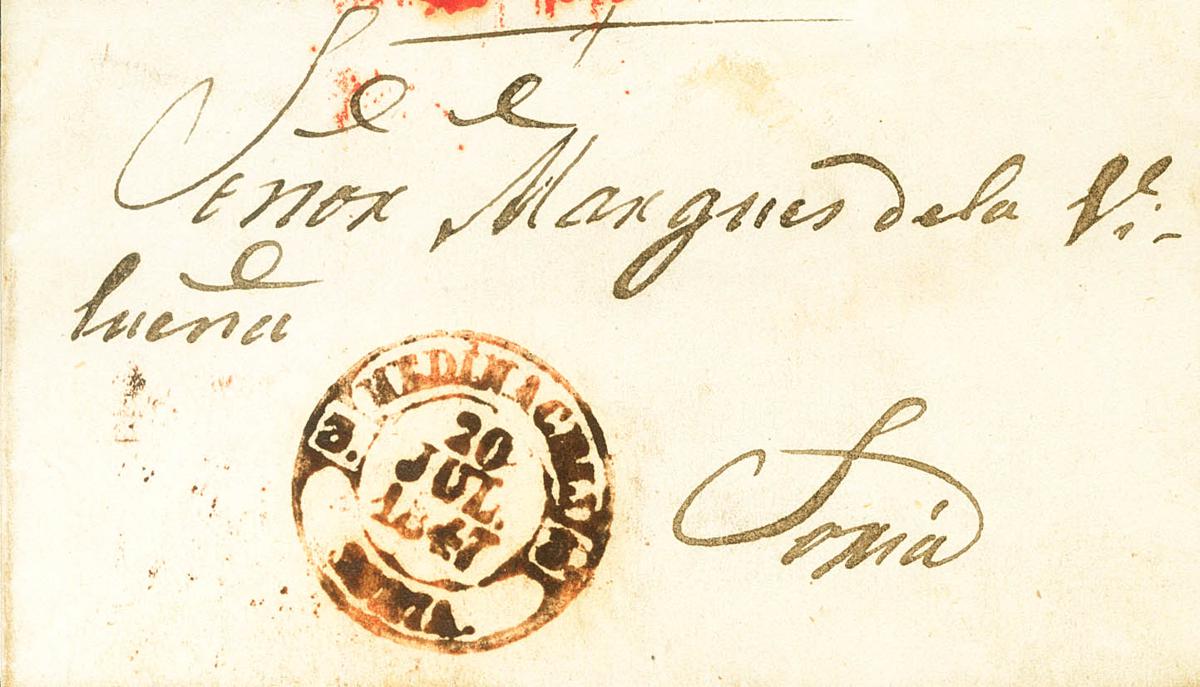 Señor Marques de la Vi-
lueña
Soria
MEDINACELI
20
JUL.
1847